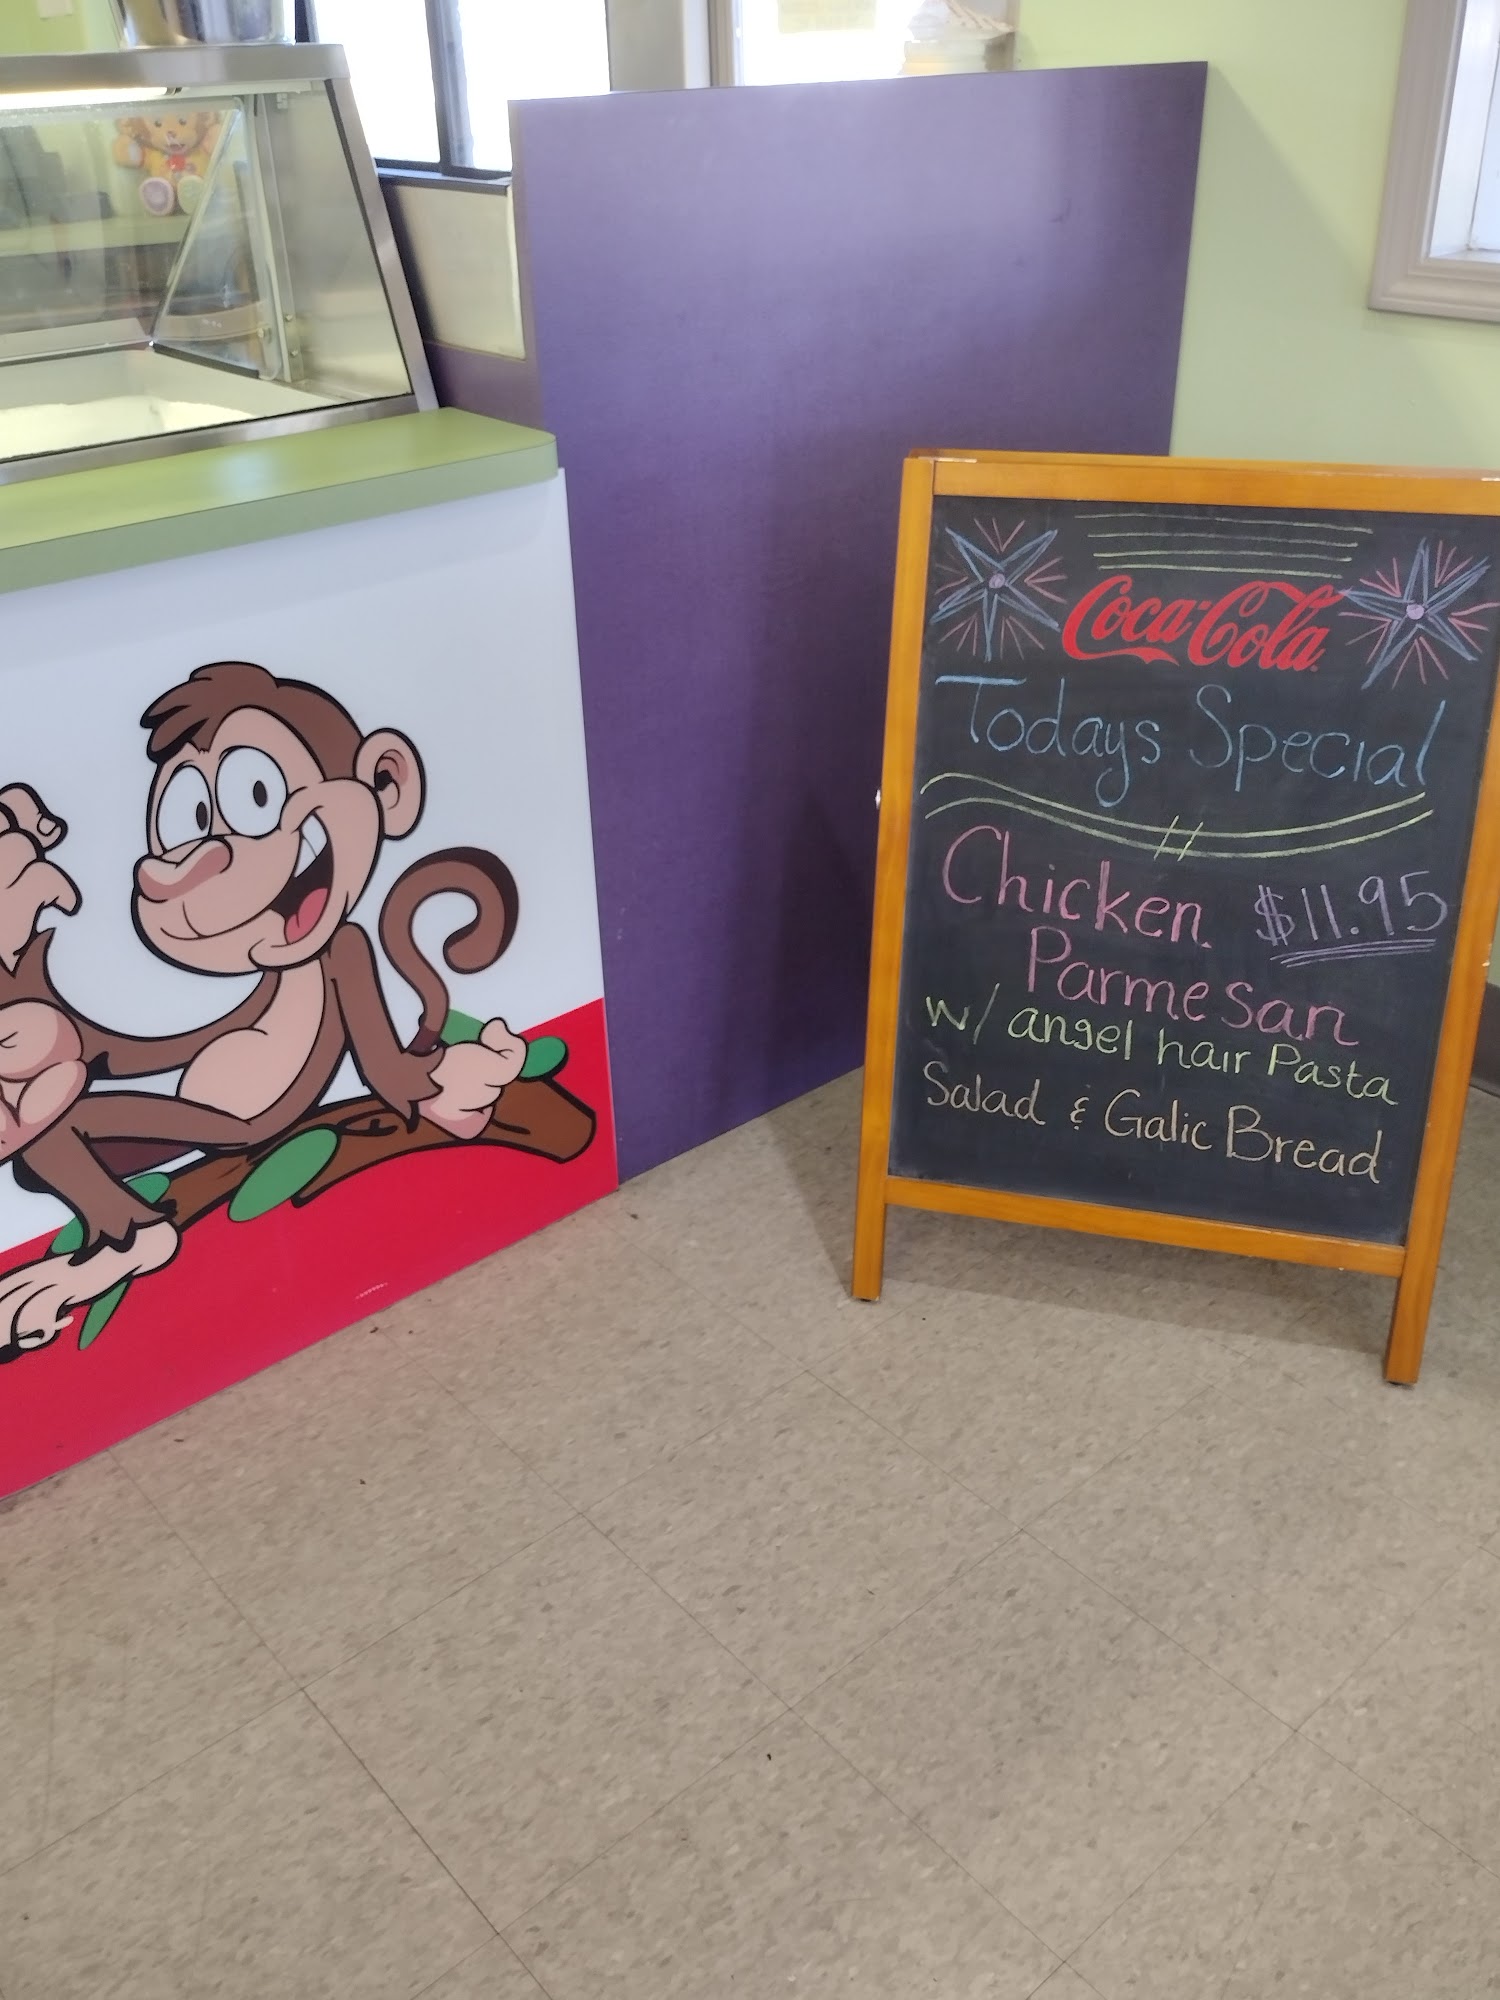 Coca-Cola
Todays Special
Chicken $11.95
Parmesan
w/ angel hair Pasta
Salad & Galic Bread